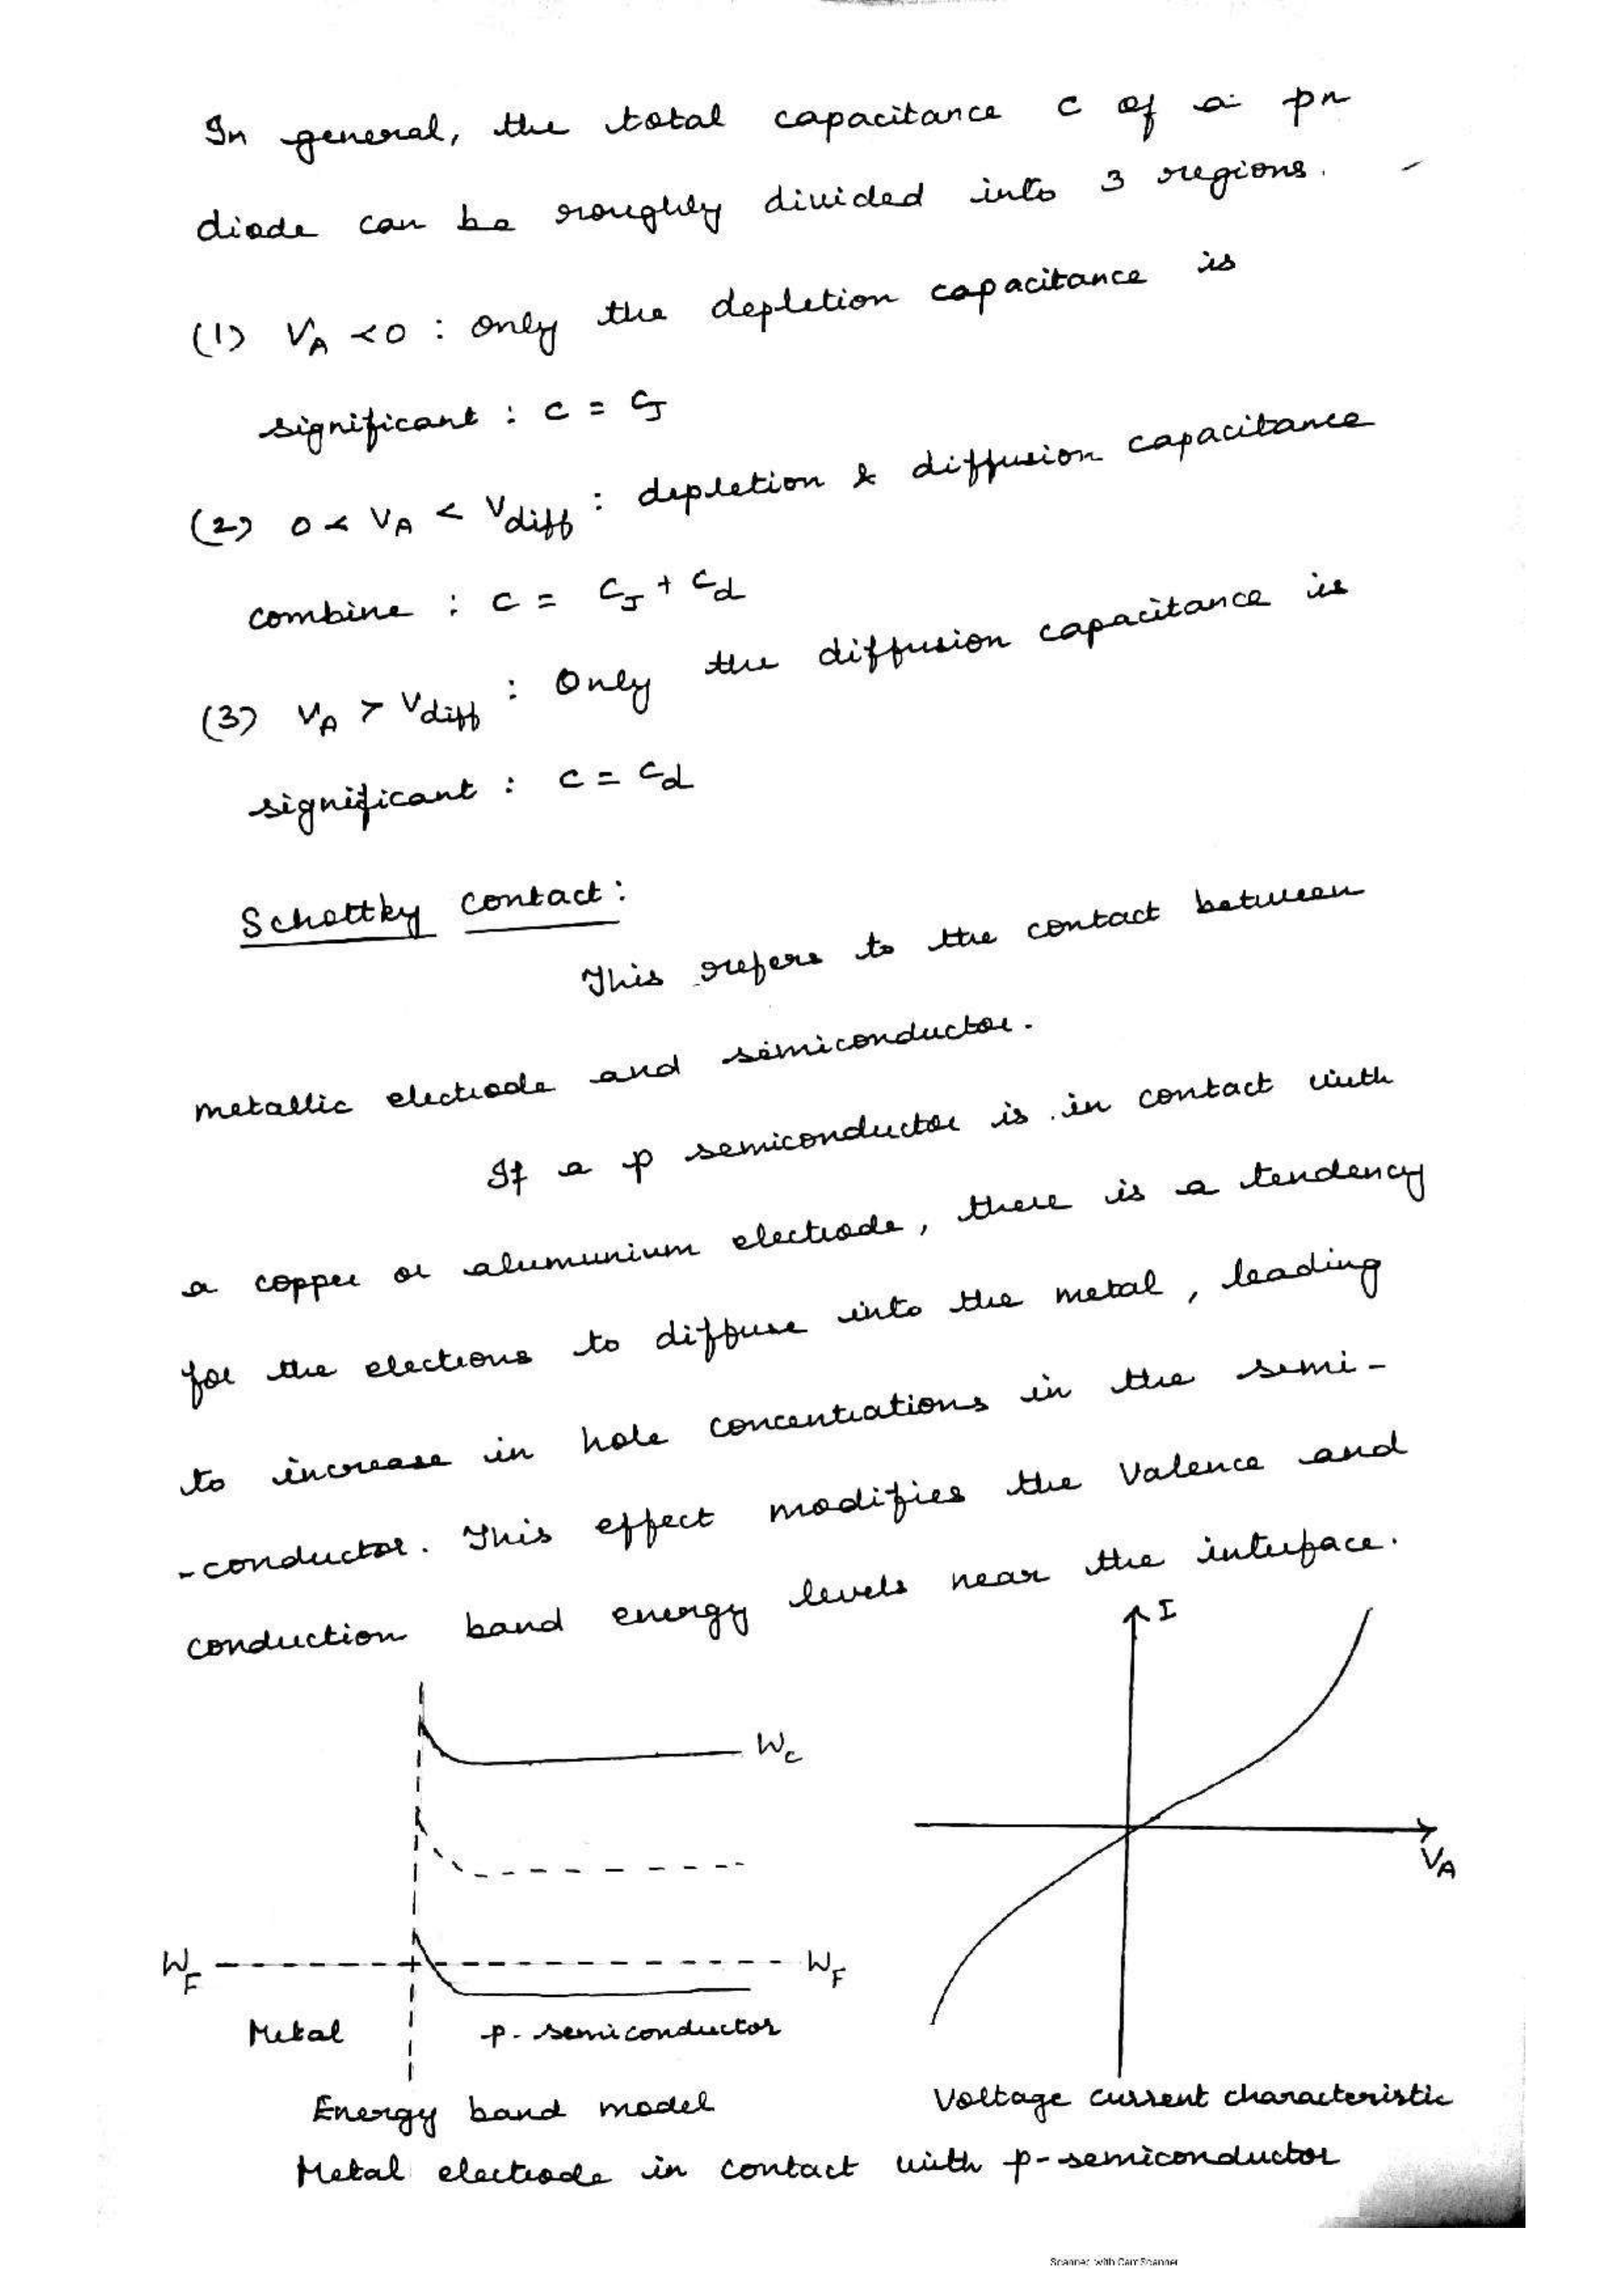 In general, the total capacitance C of a pn
diode can be roughly divided into 3 regions.
(1) VA < 0 : only the depletion capacitance is
significant : C = CJ
(2) 0 < VA < Vdiff : depletion & diffusion capacitance
combine : C = CJ + Cd
(3) VA > Vdiff : Only the diffusion capacitance is
significant : C = Cd
Schottky contact :
This refers to the contact between
metallic electrode and semiconductor.
If a p semiconductor is in contact with
a copper or alumunium electrode, there is a tendency
for the electrons to diffuse into the metal, leading
to increase in hole concentrations in the semi-
-conductor. This effect modifies the Valence and
conduction band energy levels near the interface.
I
WC
VA
WF
WF
Metal
p-semiconductor
Energy band model
Voltage current characteristic
Metal electrode in contact with p-semiconductor
Scanned with CamScanner